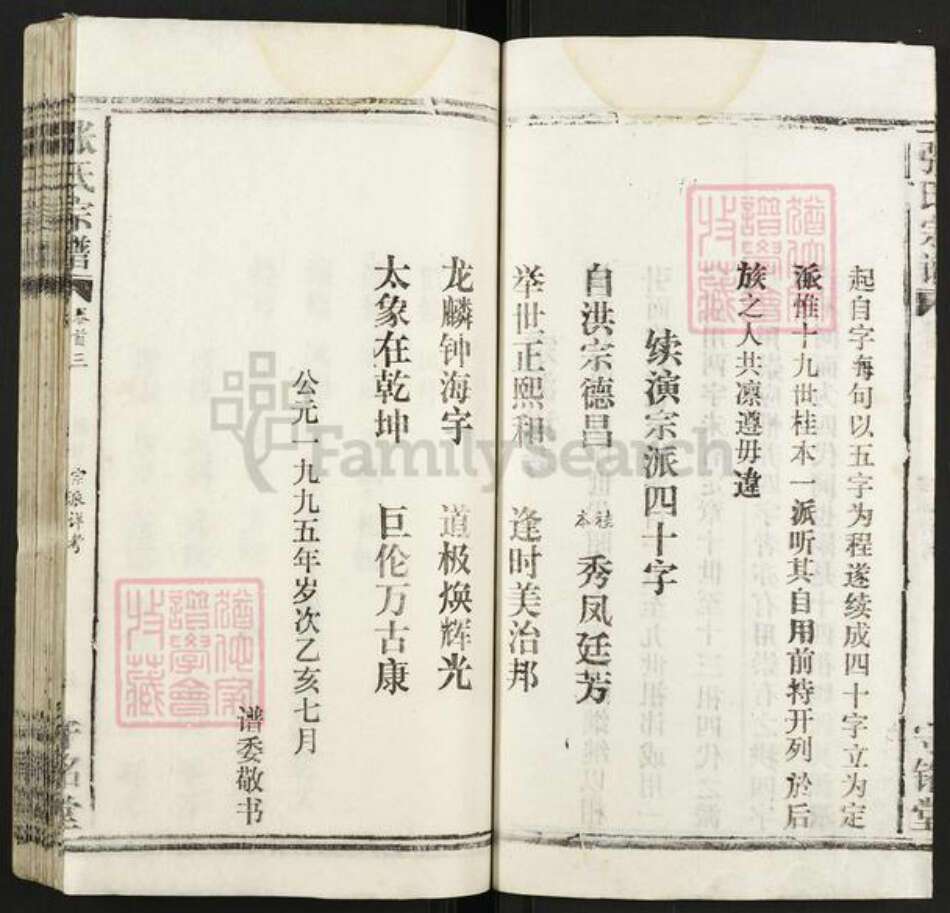 起自字每句以五字为程遂续成四十字立为定
派惟十九世桂本一派听其自用前特开列於后
族之人共凛遵毋違
续演宗派四十字
自洪宗德昌 桂本 秀凤廷芳
举世正熙和 逢时美治邦
龙麟钟海宇 道极焕辉光
太象在乾坤 巨伦万古康
公元一九九五年岁次乙亥七月
谱委敬书
张氏宗谱
卷首三
宗派详考
猶他家譜學會收藏
猶他家譜學會收藏
FamilySearch